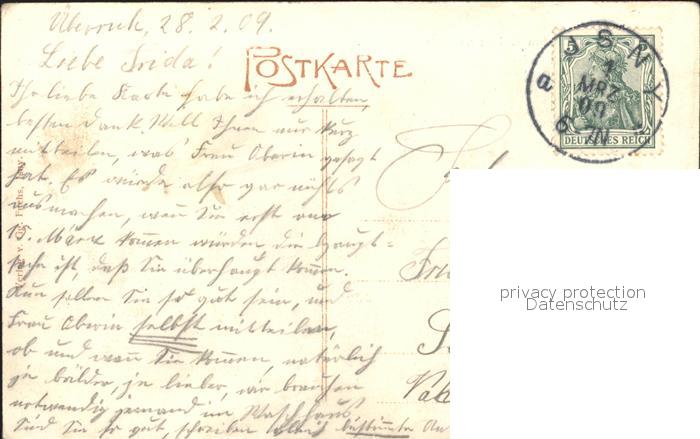 Überruh, 28. 2. 09.
Liebe Frida!
POSTKARTE
Ihr liebe Karte habe ich erhalten,
besten Dank. Will Ihnen nur kurz
mitteilen, was Frau Oberin gesagt
hat. Es würde also gar nichts
ausmachen, wenn Sie erst am
15. März kommen würden die Haupt-
sache ist, daß Sie überhaupt kommen.
Nun sollen Sie so gut sein, und
Frau Oberin selbst mitteilen,
ob und wann Sie kommen, natürlich
je bälder, je lieber, wir brauchen
notwendig jemand im Waschhaus
Sind Sie so gut, schreiben bestimmte
JSNY
1
MRZ
09
6-7N
a
5
DEUTSCHES REICH
privacy protection
Datenschutz